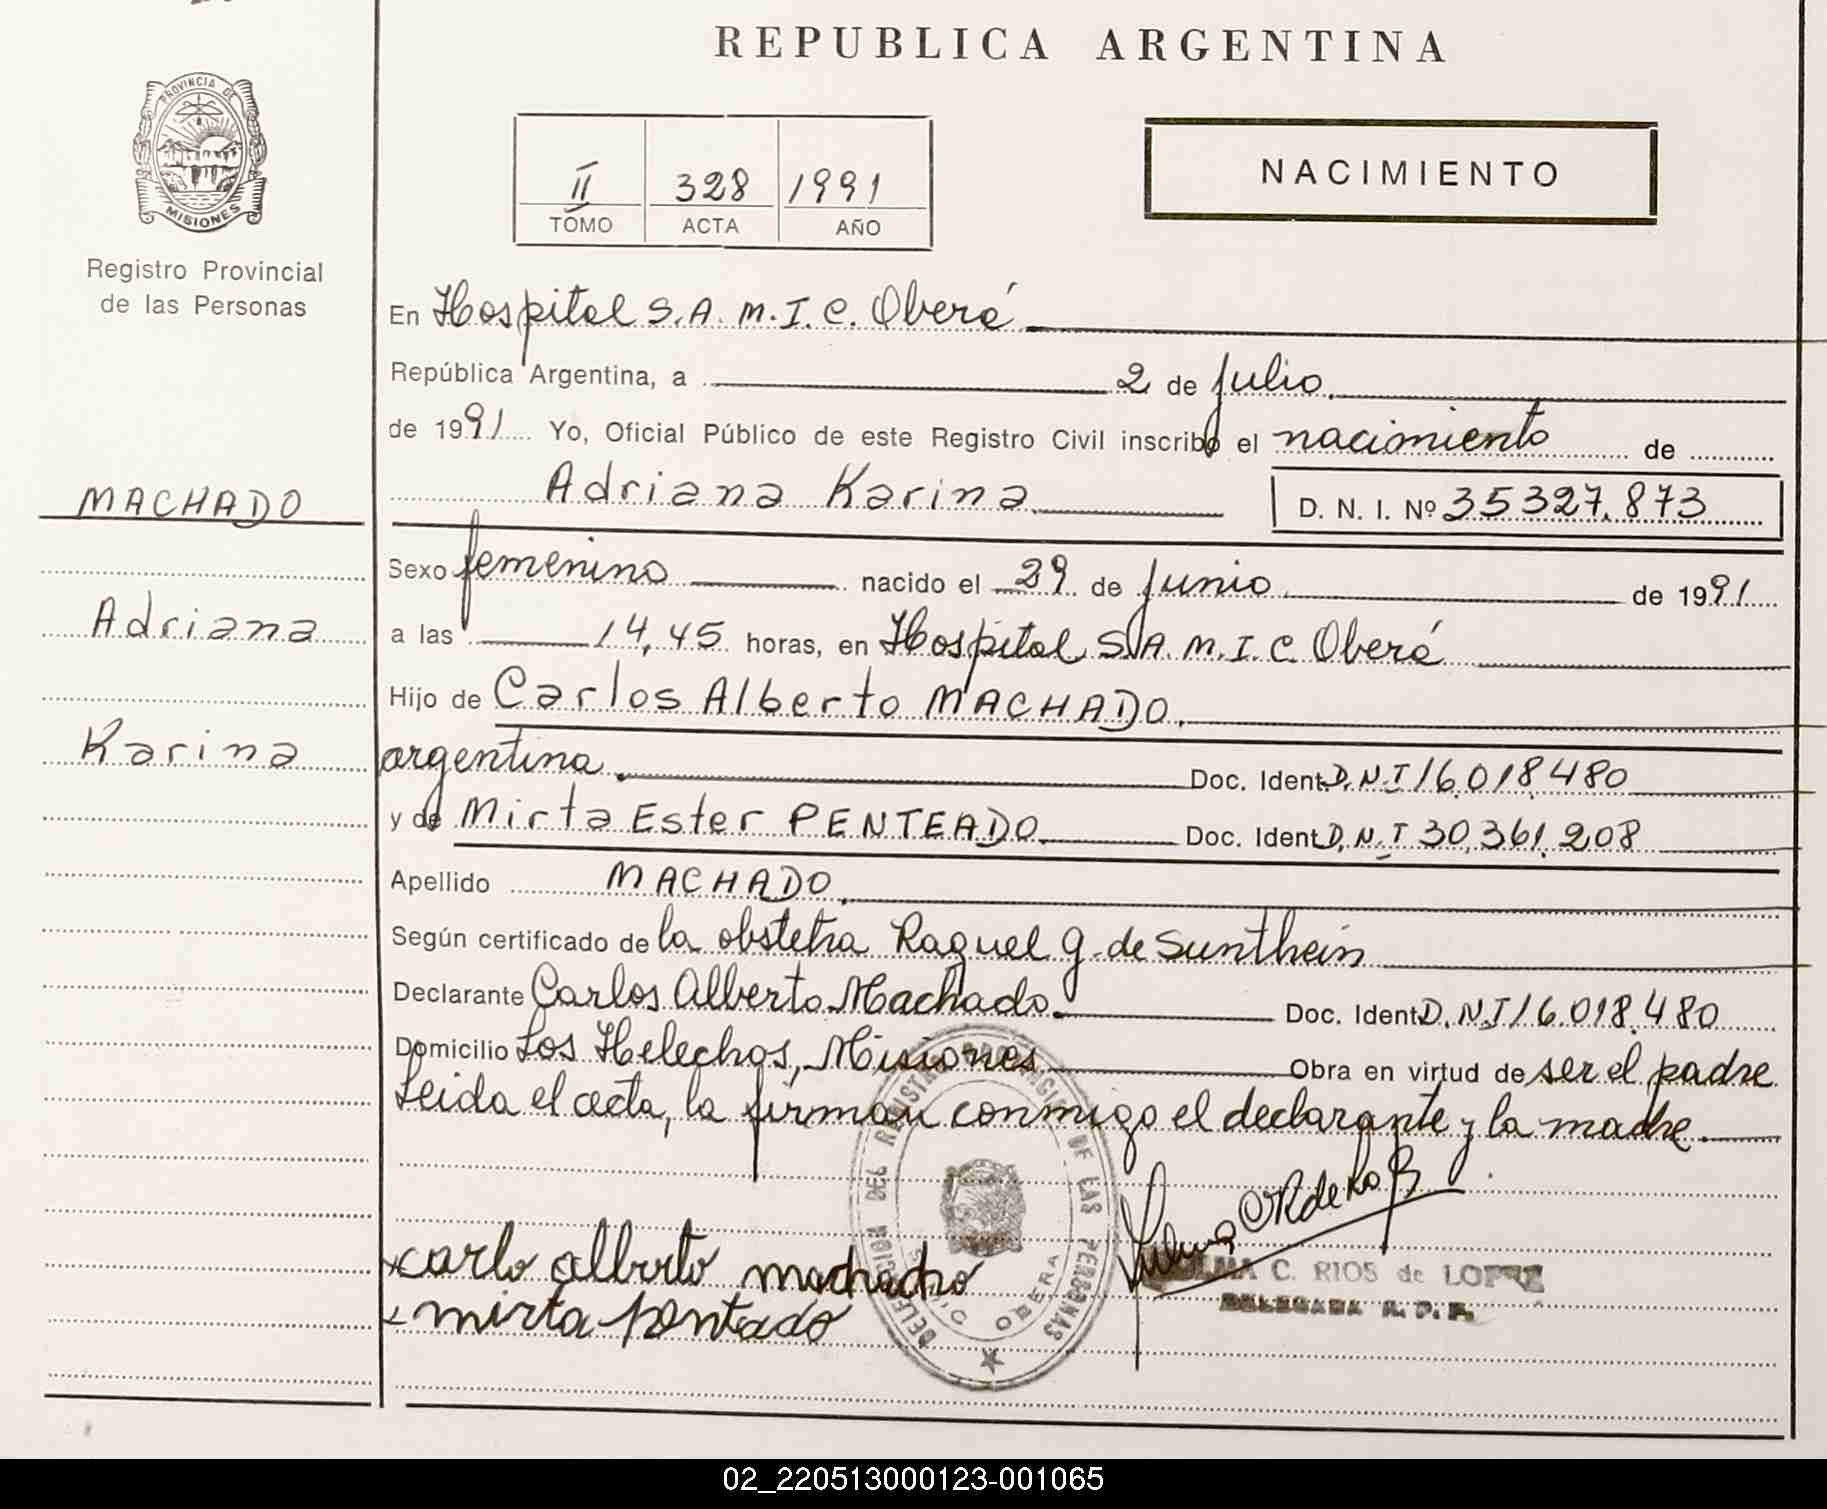 REPUBLICA ARGENTINA
PROVINCIA DE
MISIONES
Registro Provincial
de las Personas
II 328 1991
TOMO ACTA AÑO
NACIMIENTO
En Hospital S.A.M.I.C. Oberá
República Argentina, a 2 de julio
de 1991 Yo, Oficial Público de este Registro Civil inscribo el nacimiento de
MACHADO
Adriana Karina D. N. I. Nº 35327.873
Sexo femenino nacido el 29 de junio de 1991
Adriana
a las 14,45 horas, en Hospital S.A.M.I.C. Oberá
Hijo de Carlos Alberto MACHADO
Karina
argentina Doc. Ident. D.N.I 16.018.480
y de Mirta Ester PENTEADO Doc. Ident. D.N.I 30.361.208
Apellido MACHADO
Según certificado de la obstetra Raquel G. de Sunthein
Declarante Carlos Alberto Machado Doc. Ident. D.N.I 16.018.480
Domicilio Los Helechos, Misiones Obra en virtud de ser el padre
Leida el acta, la firman conmigo el declarante y la madre.
DELEGACION DEL REGISTRO PROVINCIAL DE LAS PERSONAS
OBERA
carlo alberto machacho
mirta pentado
C. RIOS de LOPEZ
DELEGADA R. P. P.
02_220513000123-001065